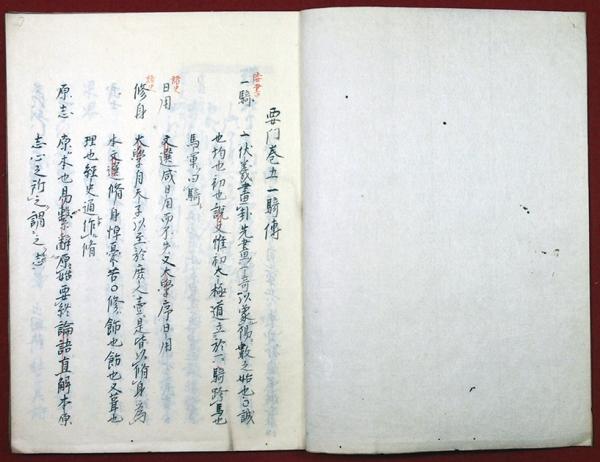 要門巻五一騎傳
一騎 一伏羲畫卦先畫一奇以象陽數之始也〇誠
也均也初也說文惟初太極道立於一騎跨馬也
馬軍曰騎
日用 文選咸日用而不失又大學序日用
修身 大學自天子以至於庶人壹是皆以脩身為
本文選脩身悼憂苦〇修飾也飭也又葺也
理也経史通作脩
原志 原本也易繫辭原始要終論語直解本原
志心之所之謂之志